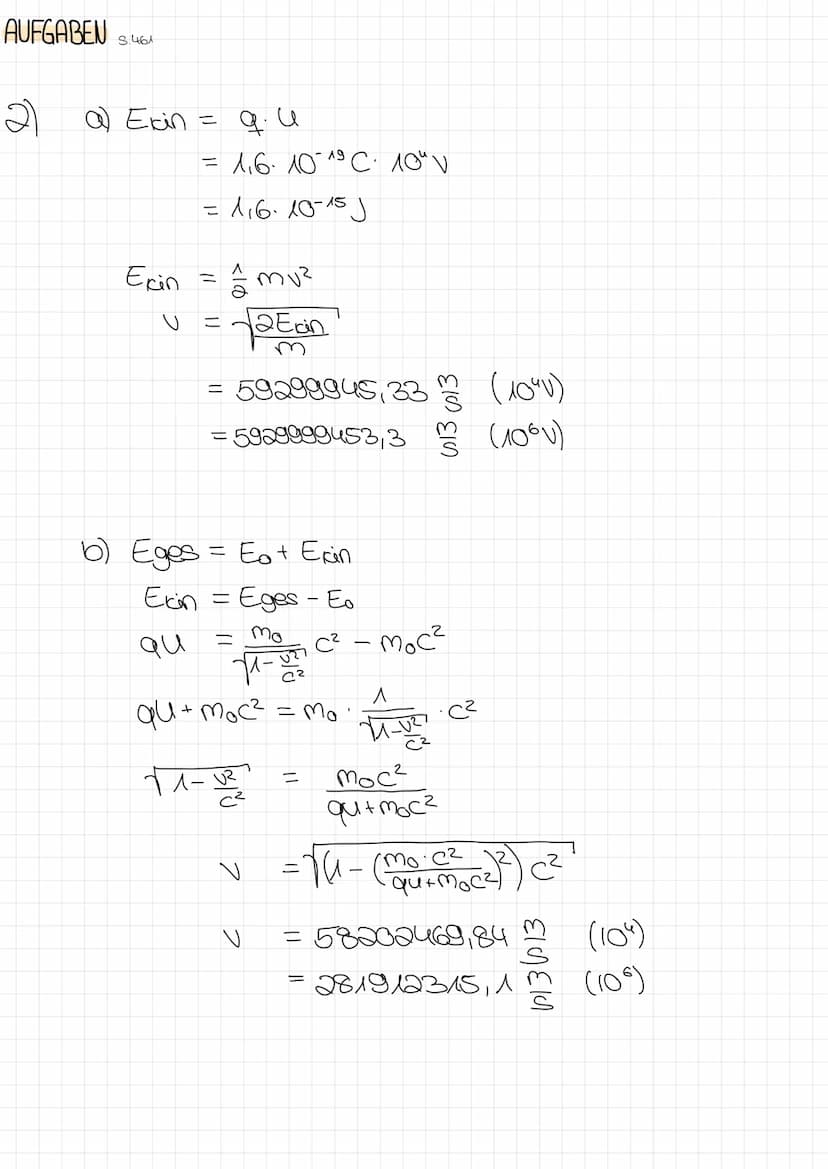 AUFGABEN S.461
2) a) Ekin = q · U
= 1,6 · 10⁻¹⁹ C · 10⁴ V
= 1,6 · 10⁻¹⁵ J
Ekin = 1/2 mv²
v = √(2Ekin/m)
= 59299945,33 m/s (10⁴V)
= 5929999453,3 m/s (10⁶V)
b) Eges = E₀ + Ekin
Ekin = Eges - E₀
qU = m₀/√(1-v²/c²) c² - m₀c²
qU + m₀c² = m₀ · 1/√(1-v²/c²) · c²
√(1-v²/c²) = m₀c²/(qU+m₀c²)
v = √((1-(m₀·c²/(qU+m₀c²))²)c²)
v = 58202469,84 m/s (10⁴)
= 281912315,1 m/s (10⁶)